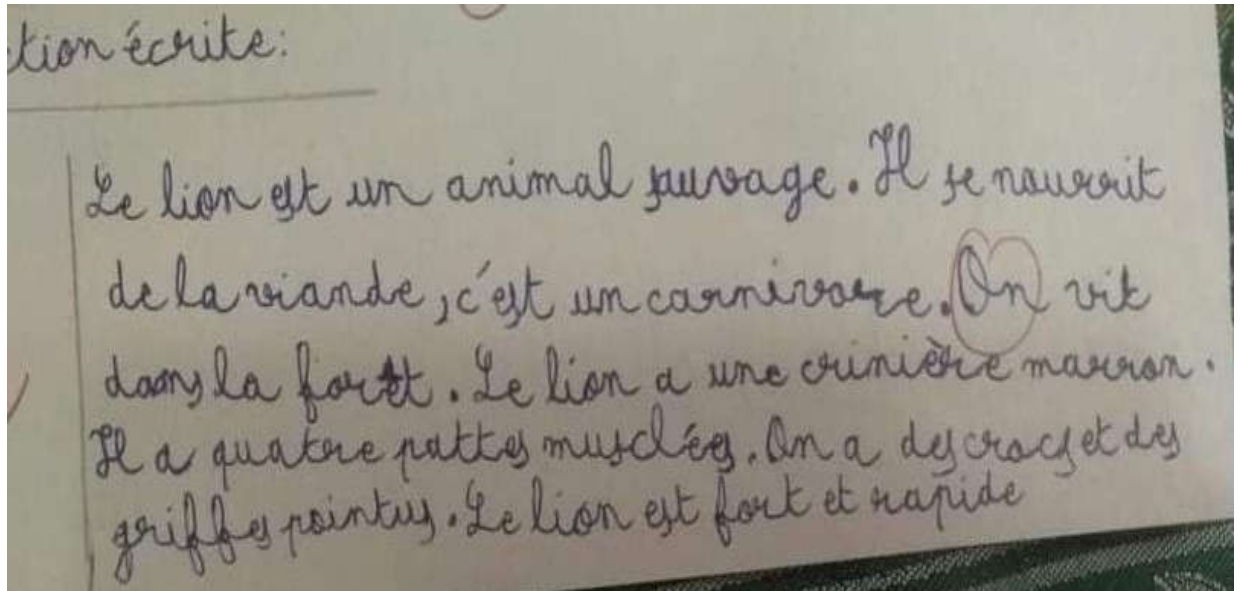 tion écrite:
Le lion est un animal sauvage. Il se nourrit
de la viande, c'est un carnivore. On vit
dans la foret. Le lion a une crinière marron.
Il a quatre pattes musclées. On a des crocs et des
griffes pointus. Le lion est fort et rapide